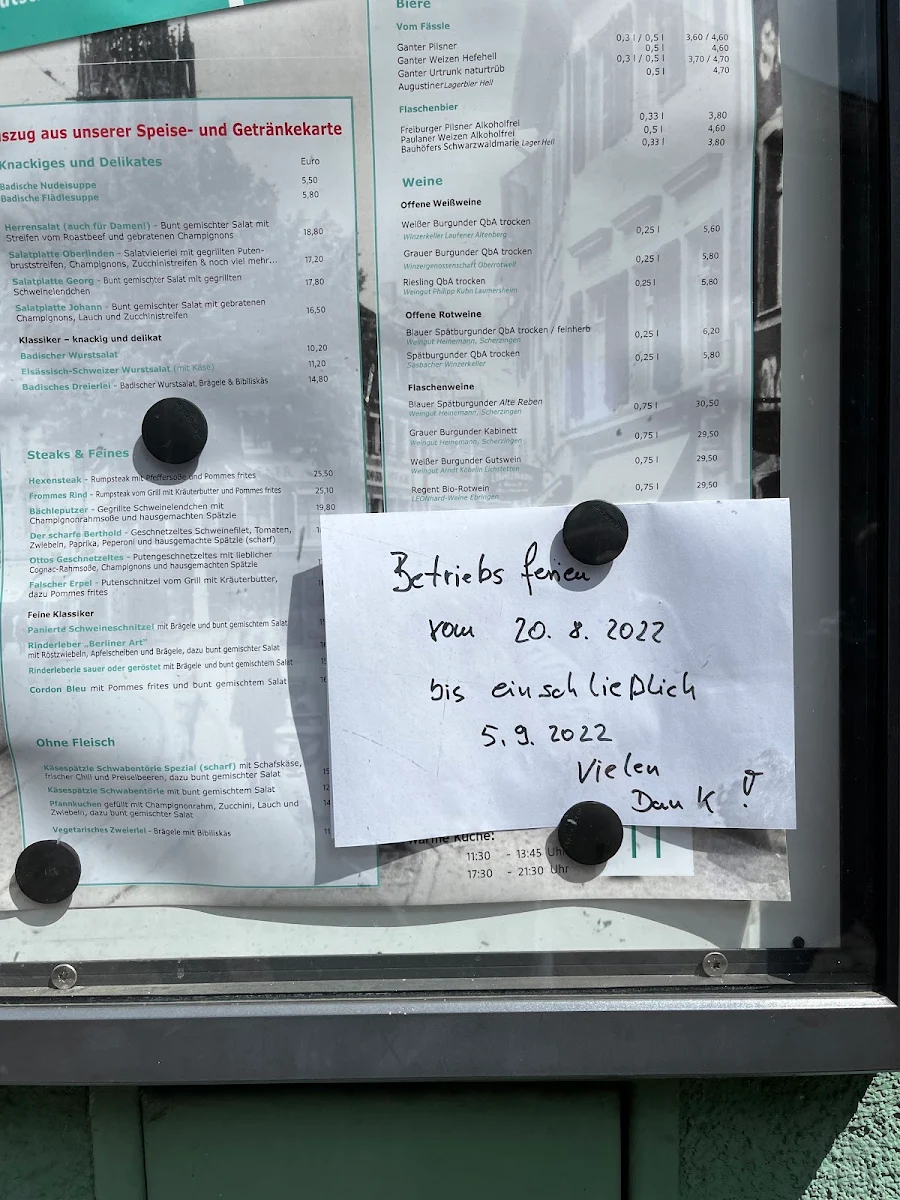 aszug aus unserer Speise- und Getränkekarte
Knackiges und Delikates Euro
Badische Nudelsuppe 5,50
Badische Flädlesuppe 5,80
Herrensalat (auch für Damen!) - Bunt gemischter Salat mit
Streifen vom Roastbeef und gebratenen Champignons 18,80
Salatplatte Oberlinden - Salatvielerlei mit gegrillten Puten-
bruststreifen, Champignons, Zucchinistreifen & noch viel mehr... 17,20
Salatplatte Georg - Bunt gemischter Salat mit gegrillten
Schweinelendchen 17,80
Salatplatte Johann - Bunt gemischter Salat mit gebratenen
Champignons, Lauch und Zucchinistreifen 16,50
Klassiker – knackig und delikat
Badischer Wurstsalat 10,20
Elsässisch-Schweizer Wurstsalat (mit Käse) 11,20
Badisches Dreierlei - Badischer Wurstsalat, Brägele & Bibiliskäs 14,80
Steaks & Feines
Hexensteak - Rumpsteak mit Pfeffersoße und Pommes frites 25,50
Frommes Rind - Rumpsteak vom Grill mit Kräuterbutter und Pommes frites 25,10
Bächleputzer - Gegrillte Schweinelendchen mit 19,80
Champignonrahmsoße und hausgemachten Spätzle
Der scharfe Berthold - Geschnetzeltes Schweinefilet, Tomaten,
Zwiebeln, Paprika, Peperoni und hausgemachte Spätzle (scharf)
Ottos Geschnetzeltes - Putengeschnetzeltes mit lieblicher
Cognac-Rahmsoße, Champignons und hausgemachten Spätzle
Falscher Erpel - Putenschnitzel vom Grill mit Kräuterbutter,
dazu Pommes frites
Feine Klassiker
Panierte Schweineschnitzel mit Brägele und bunt gemischtem Salat
Rinderleber „Berliner Art"
mit Röstzwiebeln, Apfelscheiben und Brägele, dazu bunt gemischter Salat
Rinderleberle sauer oder geröstet mit Brägele und bunt gemischtem Salat
Cordon Bleu mit Pommes frites und bunt gemischtem Salat
Ohne Fleisch
Käsespätzle Schwabentörle Spezial (scharf) mit Schafskäse,
frischer Chili und Preiselbeeren, dazu bunt gemischter Salat
Käsespätzle Schwabentörle mit bunt gemischtem Salat
Pfannkuchen gefüllt mit Champignonrahm, Zucchini, Lauch und
Zwiebeln, dazu bunt gemischter Salat
Vegetarisches Zweierlei - Brägele mit Bibiliskäs
Biere
Vom Fässle
Ganter Pilsner 0,3 l / 0,5 l 3,60 / 4,60
Ganter Weizen Hefehell 0,5 l 4,60
Ganter Urtrunk naturtrüb 0,3 l / 0,5 l 3,70 / 4,70
Augustiner Lagerbier Hell 0,5 l 4,70
Flaschenbier
Freiburger Pilsner Alkoholfrei 0,33 l 3,80
Paulaner Weizen Alkoholfrei 0,5 l 4,60
Bauhöfers Schwarzwaldmarie Lager Hell 0,33 l 3,80
Weine
Offene Weißweine
Weißer Burgunder QbA trocken 0,25 l 5,60
Winzerkeller Laufener Altenberg
Grauer Burgunder QbA trocken 0,25 l 5,80
Winzergenossenschaft Oberrotweil
Riesling QbA trocken 0,25 l 5,80
Weingut Philipp Kuhn Laumersheim
Offene Rotweine
Blauer Spätburgunder QbA trocken / feinherb 0,25 l 6,20
Weingut Heinemann, Scherzingen
Spätburgunder QbA trocken 0,25 l 5,80
Sasbacher Winzerkeller
Flaschenweine
Blauer Spätburgunder Alte Reben 0,75 l 30,50
Weingut Heinemann, Scherzingen
Grauer Burgunder Kabinett 0,75 l 29,50
Weingut Heinemann, Scherzingen
Weißer Burgunder Gutswein 0,75 l 29,50
Weingut Arndt Köbelin Eichstetten
Regent Bio-Rotwein 0,75 l 29,50
LEONhard-Weine Ebringen
Betriebsferien
vom 20. 8. 2022
bis einschließlich
5. 9. 2022
Vielen
Dank !
Warme Küche:
11:30 - 13:45 Uhr
17:30 - 21:30 Uhr